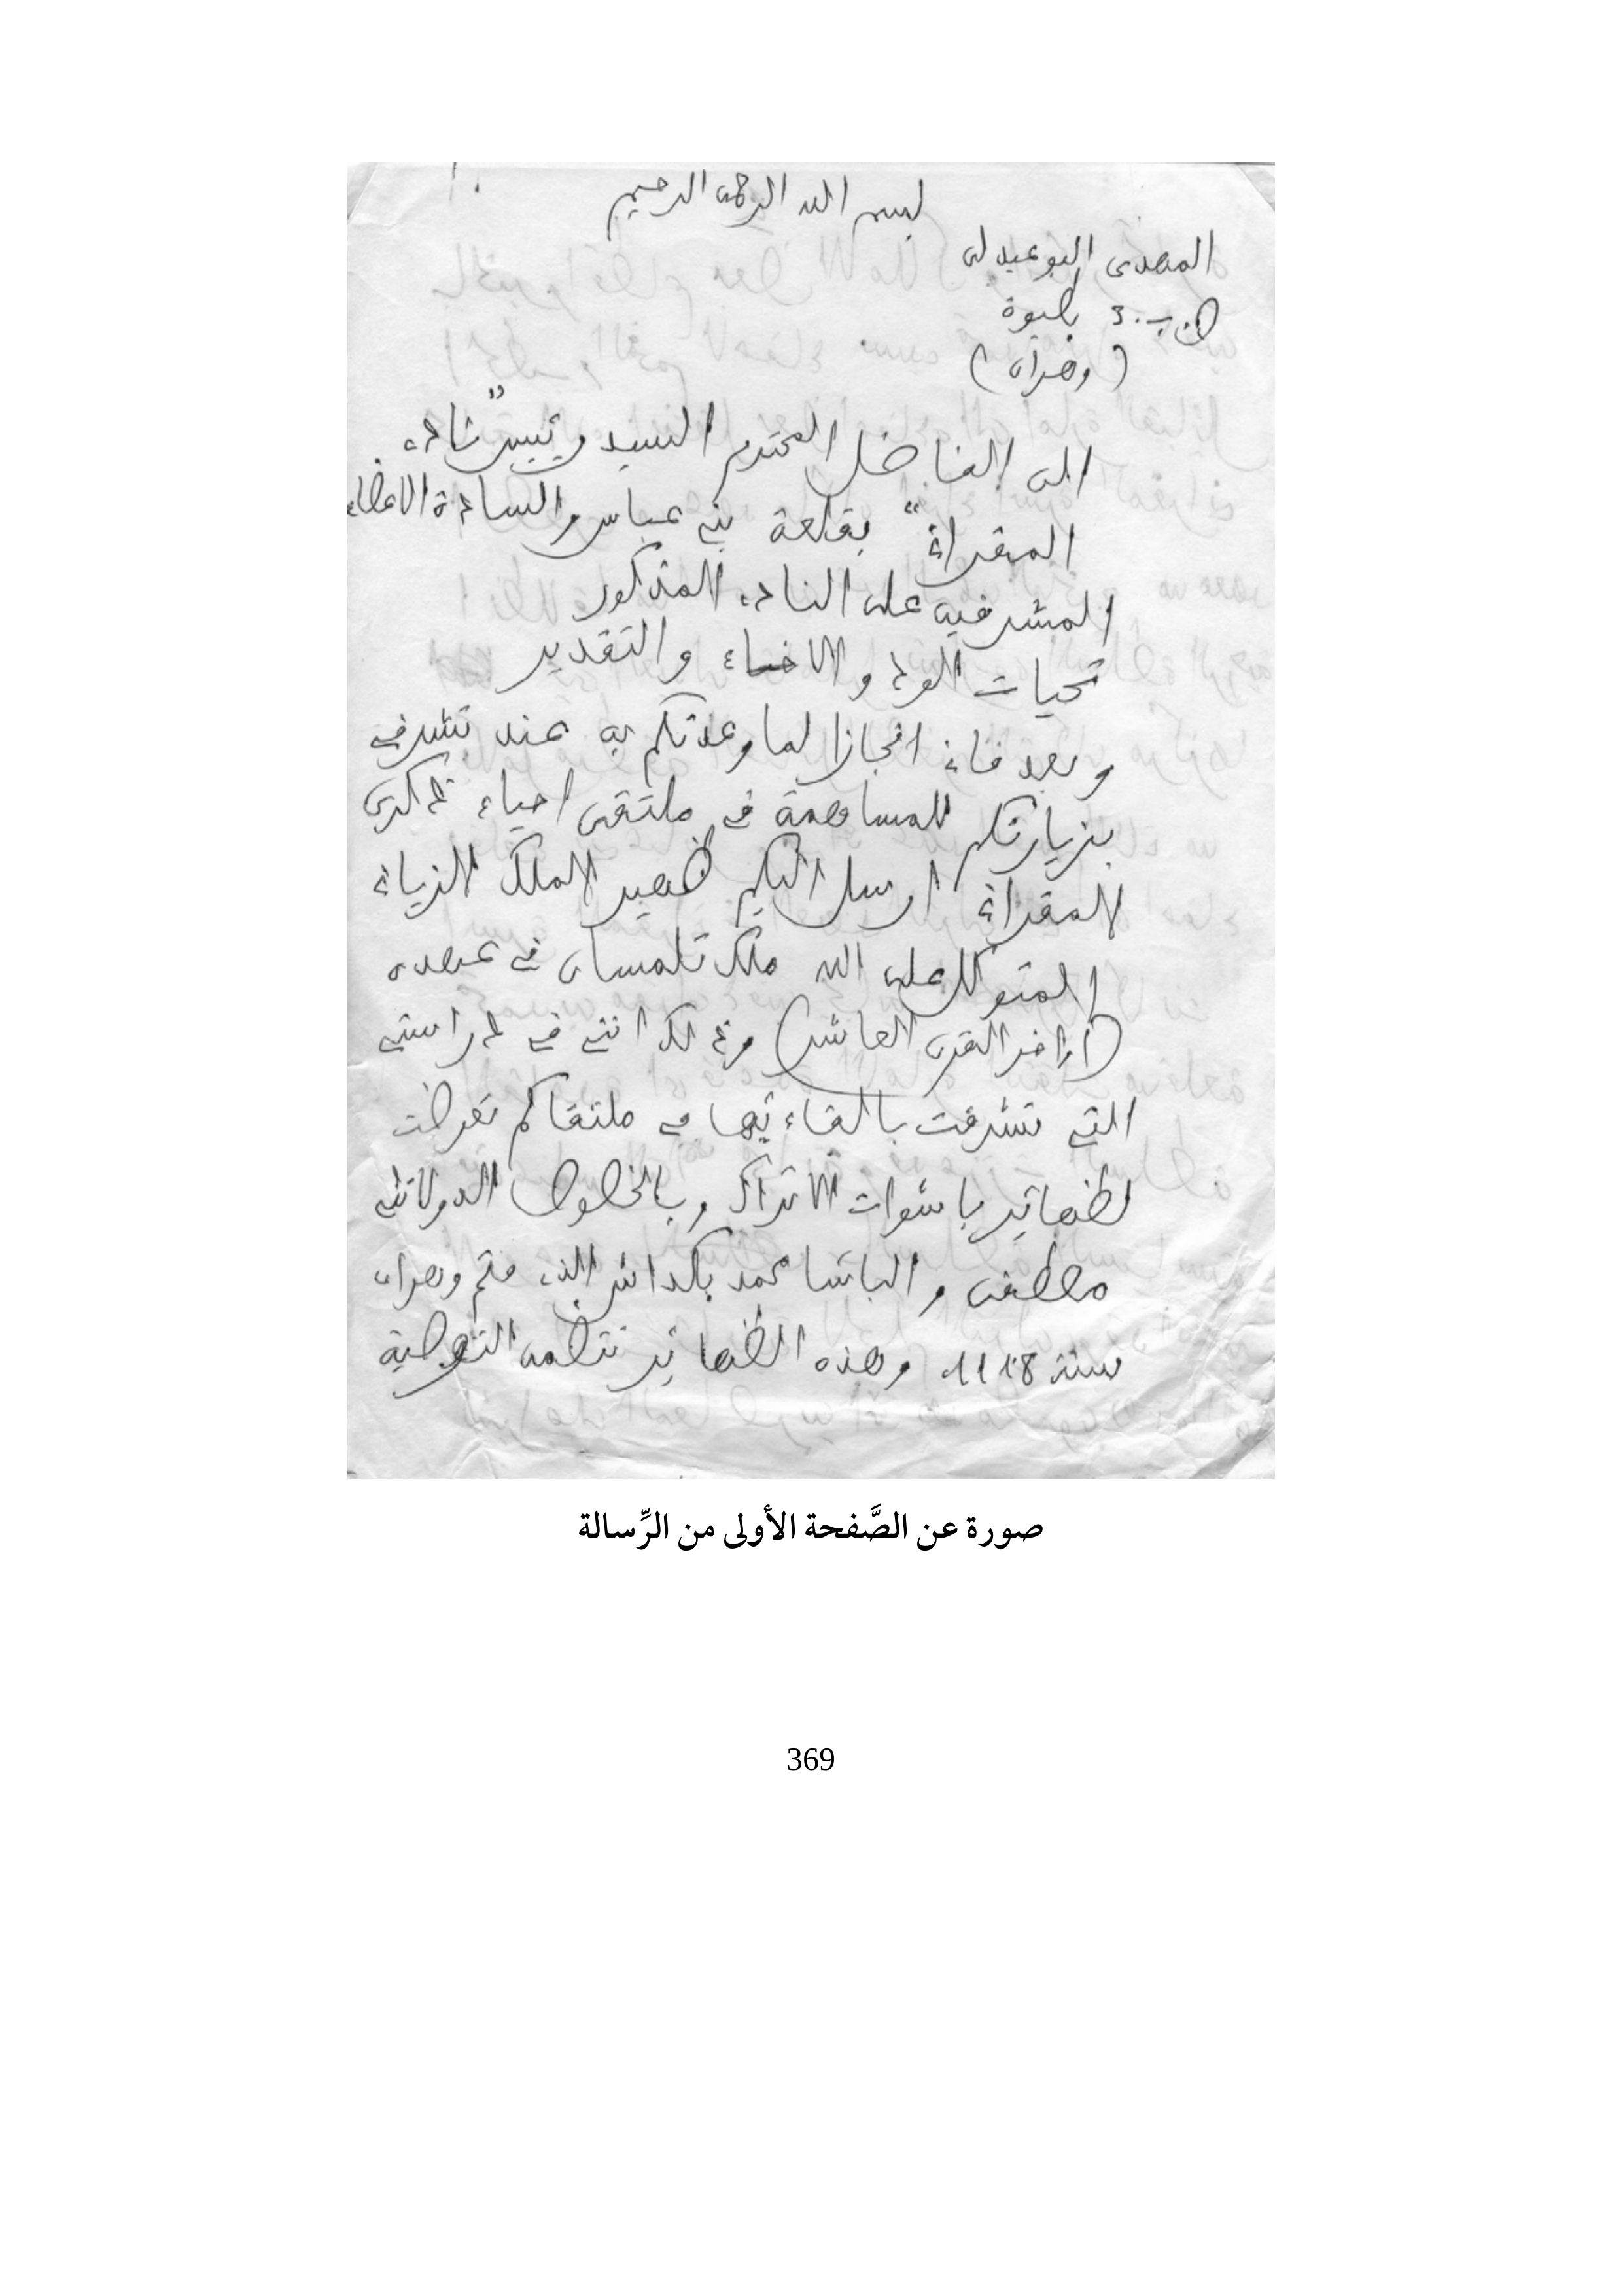 بسم الله الرحمن الرحيم
المهدي البوعبدلي
ص.ب. 3 بطيوة
(وهران)
الى الفاضل المحترم السيد رئيس "نادي
المقراني" بقلعة بني عباس والسادة الاعضاء
المشرفين على النادي المذكور
تحيات الود والاخاء والتقدير
وبعد فاني انجازا لما وعدتكم به عند تشرفي
بزيارتكم للمساهمة في ملتقى احياء ذكرى
المقراني ارسل اليكم ظهير الملك الزياني
المتوكل على الله ملك تلمسان في عهده
(اواخر القرن العاشر) وذلك انني في دراستي
التي تشرفت بالقائها في ملتقاكم تعرضت
لظهائر باشوات الاتراك وبالخصوص الدولاتلي
مصطفى والباشا محمد بكداش الذي فتح وهران
سنة 1118. وهذه الظهائر تتضمن التوصية
صورة عن الصَّفحة الأولى من الرِّسالة
369